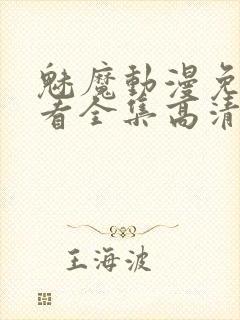 魅魔動漫免
看全集高清
王海波